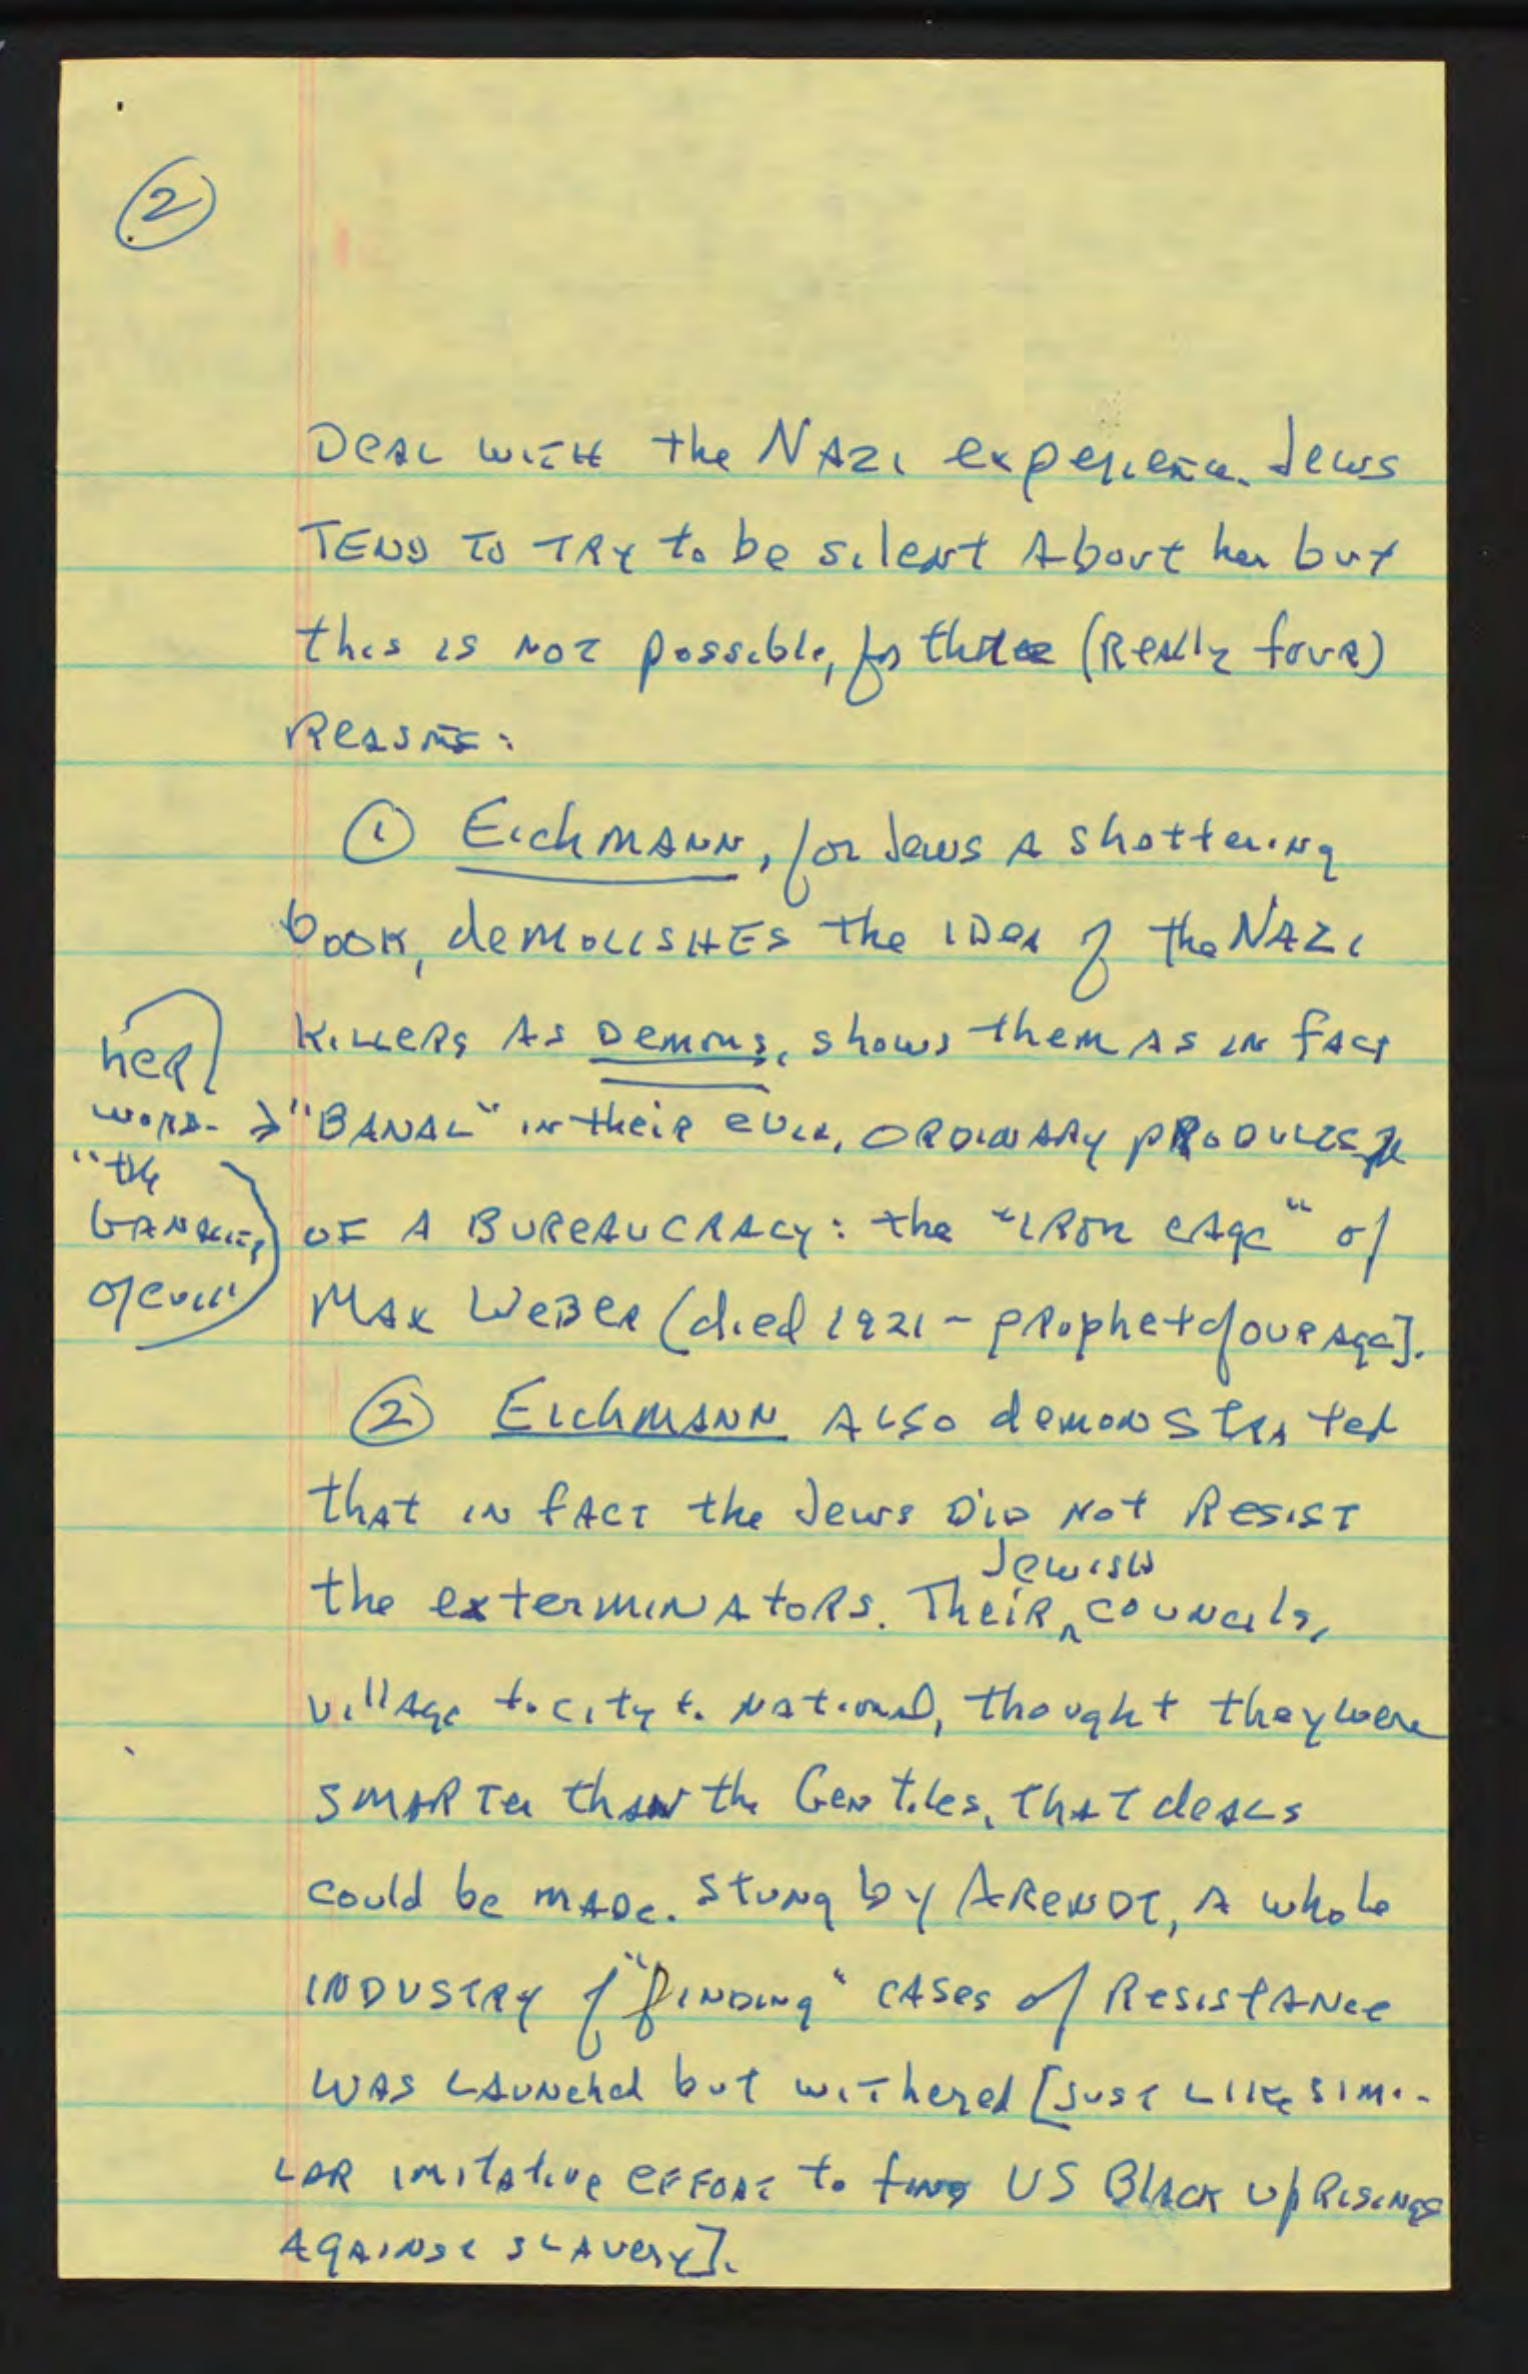 2
Deal with the Nazi experience. Jews
tend to try to be silent about her but
this is not possible, for three (really four)
reasons:
1 Eichmann, for Jews a shattering
book, demolishes the idea of the Nazi
killers as demons, shows them as in fact
her
word → "banal" in their evil, ordinary products
"the
banality of a bureaucracy: the "iron cage" of
of evil" Max Weber (died 1921 - prophet of our age].
2 Eichmann also demonstrated
that in fact the Jews did not resist
the exterminators. Their Jewish councils,
village to city to national, thought they were
smarter than the Gentiles, that deals
could be made. Stung by Arendt, a whole
industry of "finding" cases of resistance
was launched but withered [just like simi-
lar imitative effort to find US Black uprisings
against slavery].